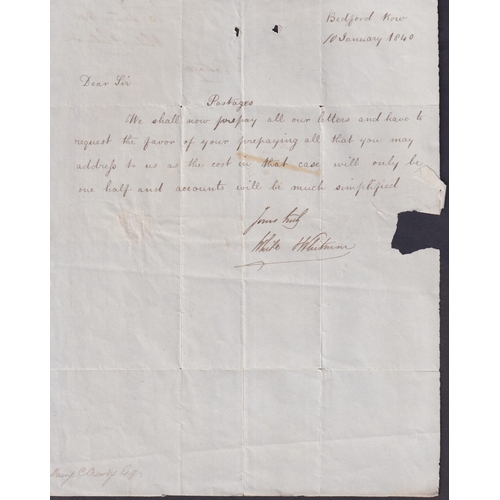 Bedford Row
10 January 1840
Dear Sir
Postages
We shall now prepay all our letters and have to
request the favor of your prepaying all that you may
address to us as the cost in that case will only be
one half and accounts will be much simplified
Yours truly
White Whitmore